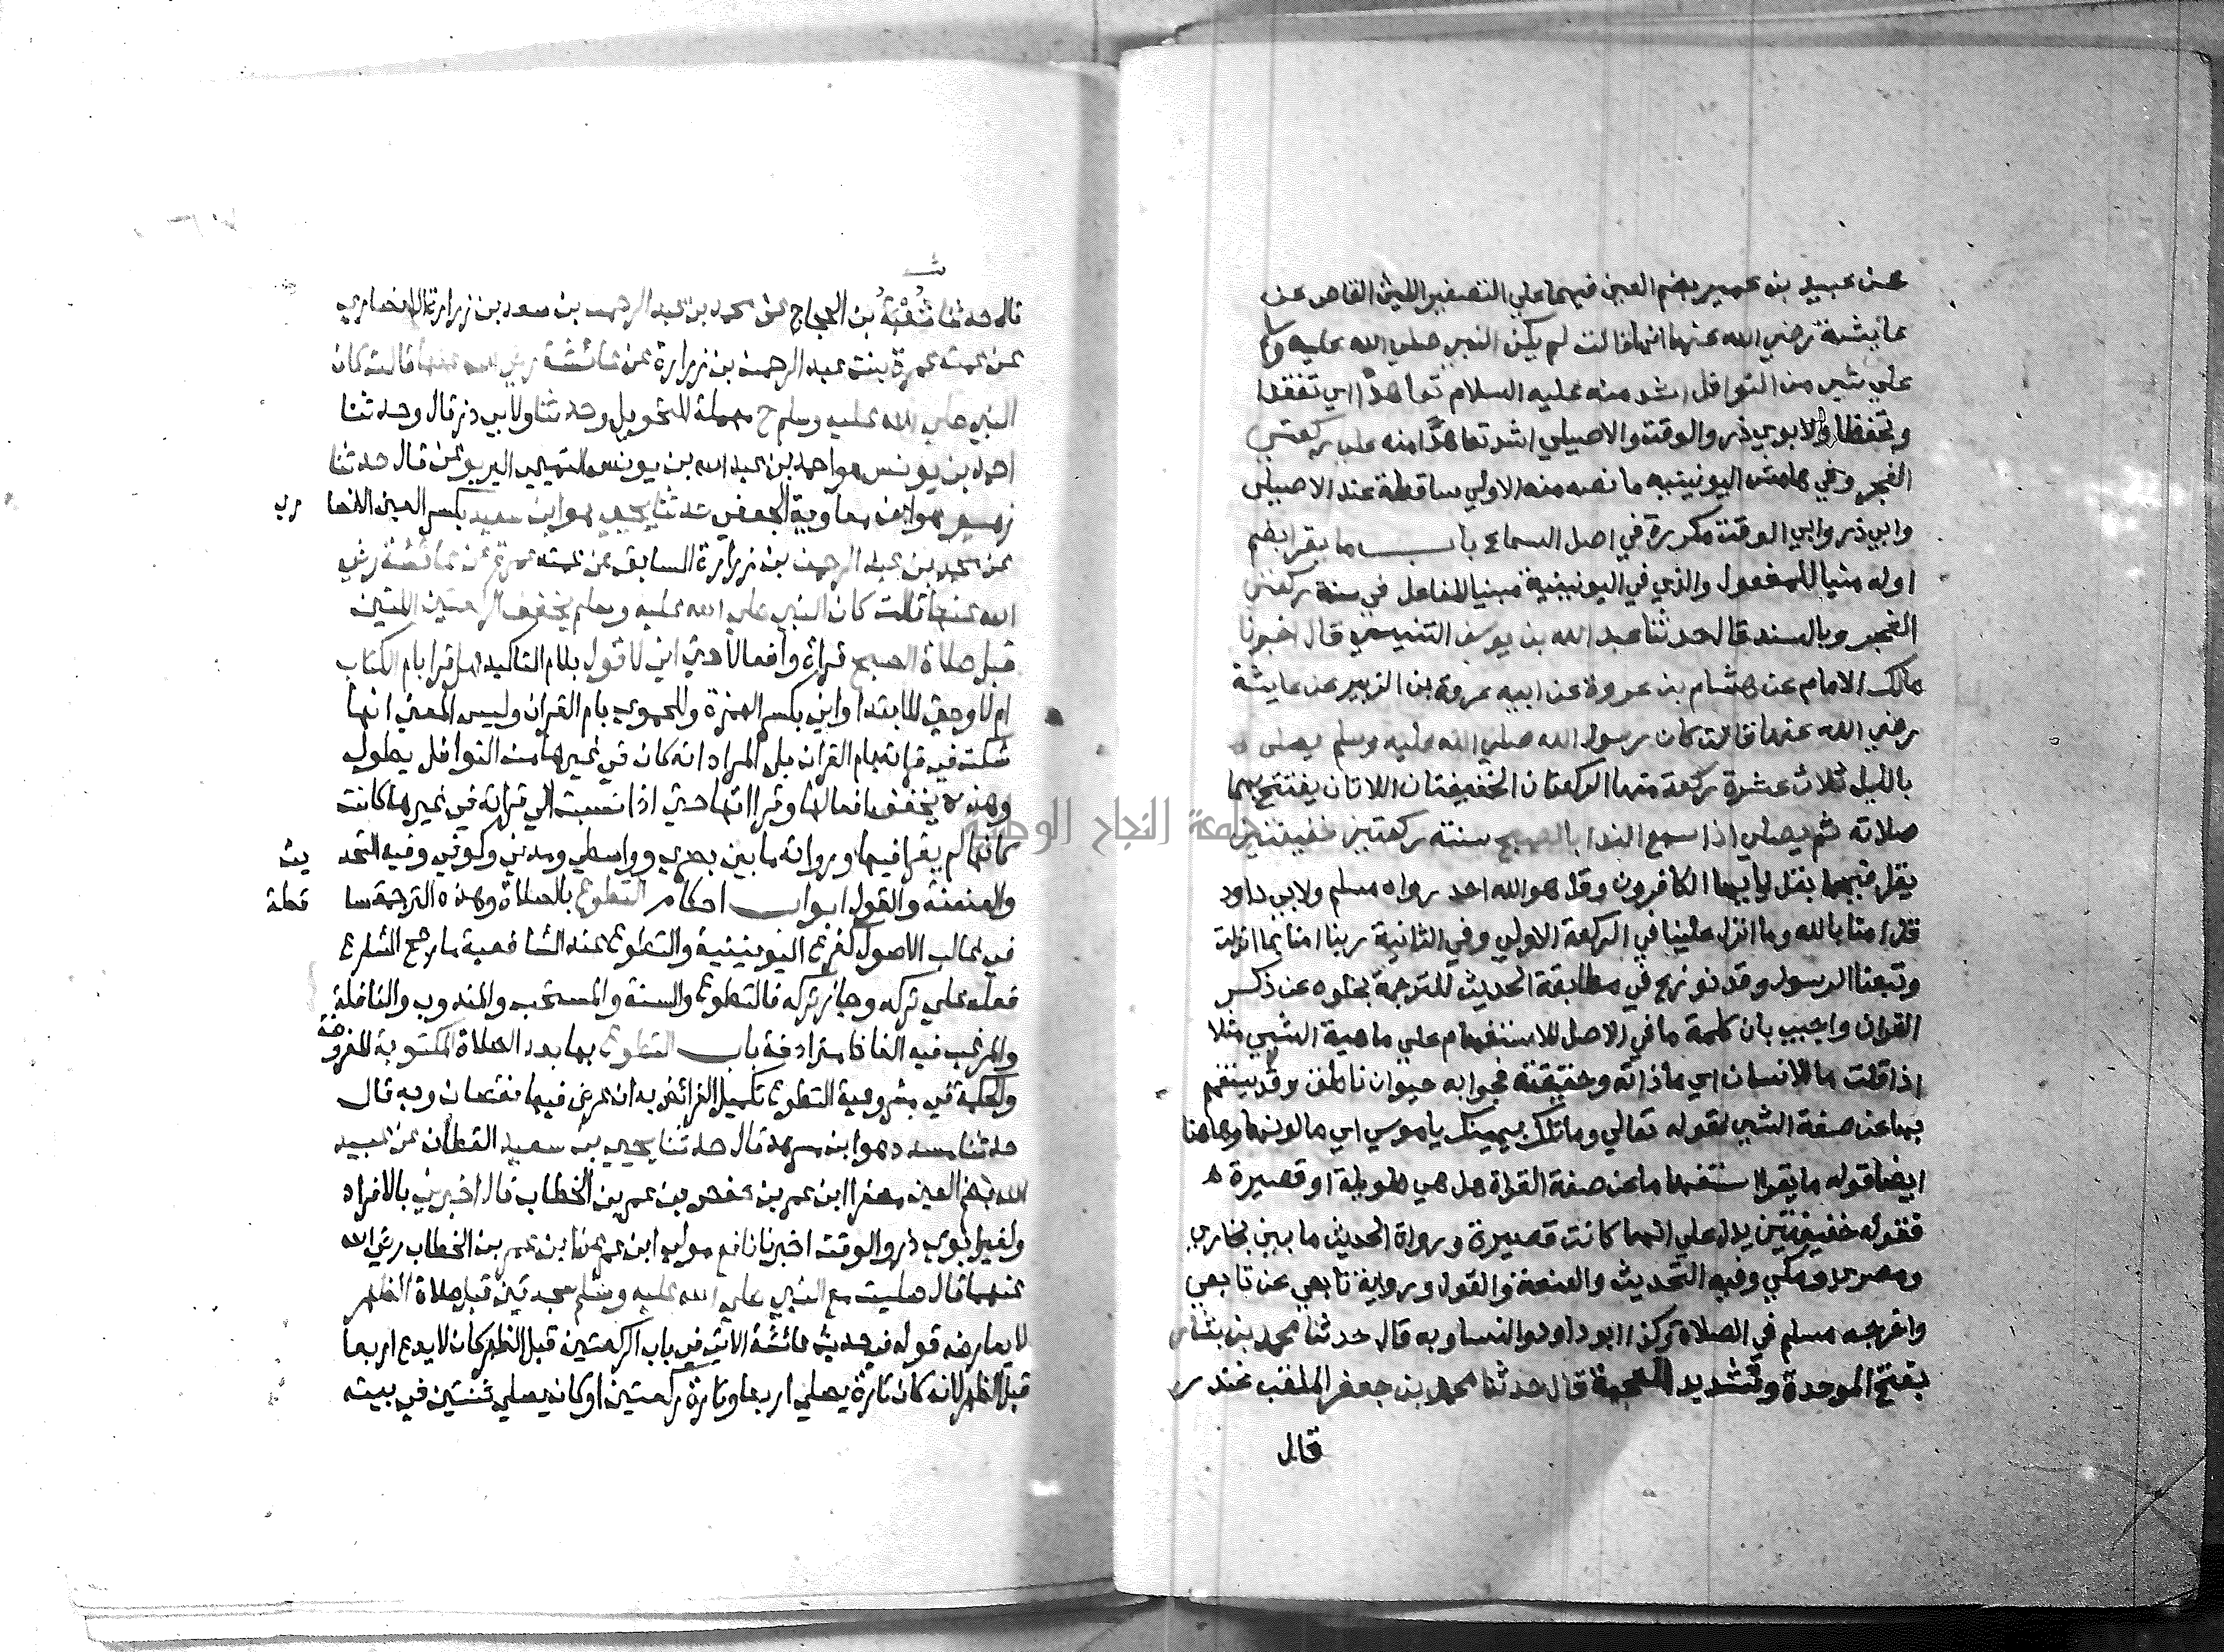 عن عبيد بن عمير بضم العين فيهما علي التصغير الليثي القاص عن
عايشة رضي الله عنها انها قالت لم يكن النبي صلي الله عليه وسلم
علي شي من النوافل اشد منه عليه السلام تعاهدًا اي تفقدا
وتحفظا ولابوي ذر والوقت والاصيلي اشد تعاهدًا منه علي ركعتي
الفجر وفي هامش اليونينيه ما نصه منه الاولي ساقطة عند الاصيلي
وابي ذر وابي الوقت مكررة في اصل السماع باب ما يقرا بضم
اوله مبنيا للمفعول والذي في اليونينية مبنيا للفاعل في سنة ركعتي
الفجر وبالسند قال حدثنا عبد الله بن يوسف التنيسي قال اخبرنا
مالك الامام عن هشام بن عروة عن ابيه عروة بن الزبير عن عايشة
رضي الله عنها قالت كان رسول الله صلي الله عليه وسلم يصلي
بالليل ثلاث عشرة ركعة منها الركعتان الخفيفتان اللاتان يفتتح بهما
صلاته ثم يصلي اذا سمع الندا بالصبح سنته ركعتين خفيفتين
يقرا فيهما بقل يا ايها الكافرون وقل هو الله احد رواه مسلم ولابي داود
قل امنا بالله وما انزل علينا في الركعة الاولي وفي الثانية ربنا امنا بما انزلت
وتبعنا الرسول وقد نوزع في مطابقة الحديث للترجمة بخلوه عن ذكر
القران واجيب بان كلمة ما في الاصل للاستفهام علي ماهية الشي مثلا
اذا قلت ما الانسان اي ما ذاته وحقيقته فجوابه حيوان ناطق وقد يستفهم
بها عن صفة الشي لقوله تعالي وما تلك بيمينك ياموسي اي ما لونها وهاهنا
ايضا قوله ما يقرا استفهاما عن صفة القراة هل هي طويلة او قصيرة
فقوله خفيفتين يدل علي انهما كانت قصيرة ورواة الحديث ما بين بخاري
ومصري ومكي وفيه التحديث والعنعنة والقول ورواية تابعي عن تابعي
واخرجه مسلم في الصلاة وكذا ابو داود والنسا وبه قال حدثنا محمد بن بشار
بفتح الموحدة وتشديد المعجمة قال حدثنا محمد بن جعفر الملقب غندر
قال
قال حدثنا شُعْبَةُ بن الحجاج عن محمد بن عبد الرحمن بن سعد بن زرارة الانصاري
عن عمته عمرة بنت عبد الرحمن بن زرارة عن عائشة رضي الله عنها قالت كان
النبي صلي الله عليه وسلم ح مهملة للتحويل وحدثنا ولابي ذر قال وحدثنا
احمد بن يونس هو احمد بن عبد الله بن يونس التميمي اليربوعي قال حدثنا
زهير هو ابن معاوية الجعفي حدثنا يحيي هو ابن سعيد بكسر العين الانصا ري
عن محمد بن عبد الرحمن بن زرارة السابق عن عمته عمرة عن عائشة رضي
الله عنها قالت كان النبي صلي الله عليه وسلم يخفف الركعتين اللتين
قبل صلاة الصبح قراة وافعالا حتي اني لا قول بلام التاكيد هل قرا بام الكتاب
ام لا وحتي للابتدا واني بكسر الهمزة وللحموي بام القران وليس المعني انها
شكت في قراته بام القران بل المراد انه كان في غيرها من النوافل يطول
وهذه يخفف افعالها وقراتها حتي اذا نسبت الي قراته في غيرها كانت
كانها لم يقرا فيها ورواته ما بين بصري وواسطي ومدني وكوفي وفيه التحد يث
والعنعنة والقول ابواب احكام التطوع بالصلاة وهذه الترجمة سا قطة
في غالب الاصول كفرع اليونينية والتطوع عند الشافعية ما رجح الشارع
فعله علي تركه وجاز تركه فالتطوع والسنة والمستحب والمندوب والنافلة
والمرغب فيه الفاظ مترادفة باب التطوع بها بعد الصلاة المكتوبة المفروضة
والحكمة في مشروعية التطوع تكميل الفرائض به ان عرض فيها نقصان وبه قال
حدثنا مسدد هو ابن مسرهد قال حدثنا يحيي بن سعيد القطان عن عبيد
الله بضم العين مصغرا ابن عمر بن حفص بن عمر بن الخطاب قال اخبرني بالافراد
ولغير ابوي ذر والوقت اخبرنا نافع مولي ابن عمر عن ابن عمر بن الخطاب رضي الله
عنهما قال صليت مع النبي صلي الله عليه وسلم سجدتين قبل صلاة الظهر
لا يعارضه قوله في حديث عائشة الاتي في باب الركعتين قبل الظهر كان لا يدع اربعا
قبل الظهر لانه كان تارة يصلي اربعا وتارة ركعتين او كان يصلي ثنتين في بيته
جامعة النجاح الوطنية